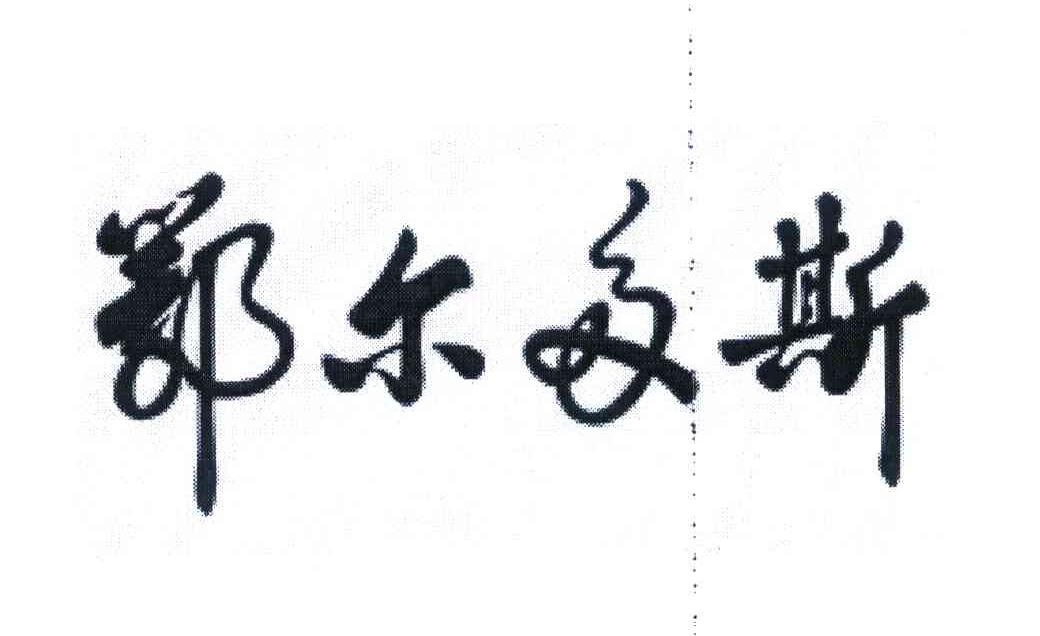 鄂尔多斯